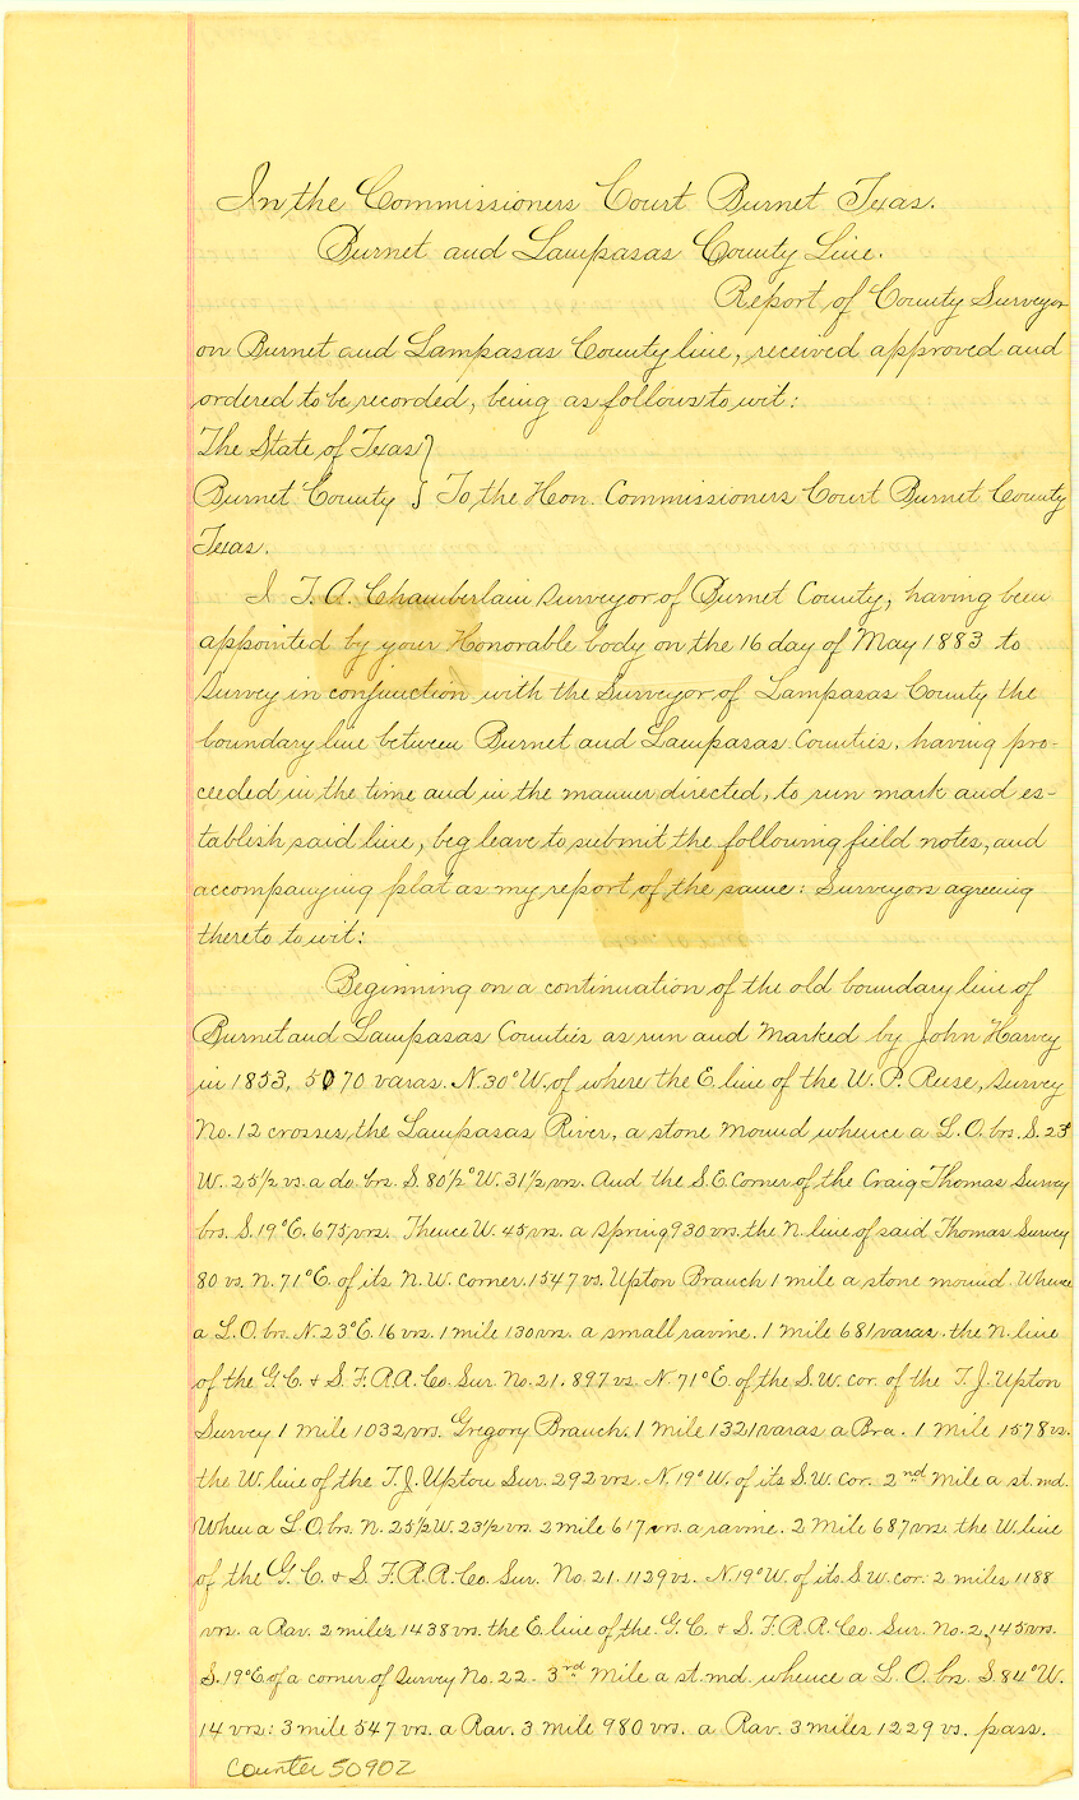 In the Commissioners Court Burnet Texas.
Burnet and Lampasas County Line.
Report of County Surveyor
on Burnet and Lampasas County line, received approved and
ordered to be recorded, being as follows to wit:
The State of Texas }
Burnet County } To the Hon. Commissioners Court Burnet County
Texas.
I T. A. Chamberlain Surveyor of Burnet County, having been
appointed by your Honorable body on the 16 day of May 1883 to
survey in conjunction with the Surveyor of Lampasas County the
boundary line between Burnet and Lampasas Counties, having pro-
ceeded in the time and in the manner directed, to run mark and es-
tablish said line, beg leave to submit the following field notes, and
accompanying plat as my report of the same: Surveyors agreeing
thereto to wit:
Beginning on a continuation of the old boundary line of
Burnet and Lampasas Counties as run and marked by John Harvey
in 1853, 5070 varas. N. 30° W. of where the E. line of the W. P. Reese, survey
No. 12 crosses, the Lampasas River, a stone mound whence a L. O. brs. S. 23°
W. 25½ vs. a do. brs. S. 80½° W. 31½ vrs. And the S.E. Corner of the Craig Thomas Survey
brs. S. 19° E. 675 vrs. Thence W. 45 vrs. a spring 930 vrs. the N. line of said Thomas Survey
80 vs. N. 71° E. of its N. W. corner. 1547 vs. Upton Branch 1 mile a stone mound. Whence
a L. O. brs. N. 23° E. 16 vrs. 1 mile 130 vrs. a small ravine. 1 mile 681 varas. the N. line
of the G. C. & S. F. R.R. Co. Sur. No. 21. 897 vs. N. 71° E. of the S. W. cor. of the T. J. Upton
Survey 1 mile 1032 vrs. Gregory Branch. 1 mile 1321 varas a Bra. 1 mile 1578 vs.
the W. line of the T. J. Upton Sur. 292 vrs. N. 19° W. of its S. W. cor. 2nd mile a st. md.
When a L. O. brs. N. 25½ W. 23½ vrs. 2 mile 617 vrs. a ravine. 2 Mile 687 vrs. the W. line
of the G. C. & S. F. R. R. Co. Sur. No. 21. 1129 vs. N. 19° W. of its S. W. cor: 2 miles 1188
vrs. a Rav. 2 miles 1438 vrs. the E. line of the G. C. & S. F. R. R. Co. Sur. No. 2, 145 vrs.
S. 19° E. of a corner of Survey No. 22. 3rd Mile a st. md. whence a L. O. brs. S. 84° W.
14 vrs: 3 mile 547 vrs. a Rav. 3 mile 980 vrs. a Rav. 3 miles 1229 vs. pass.
Counter 50902